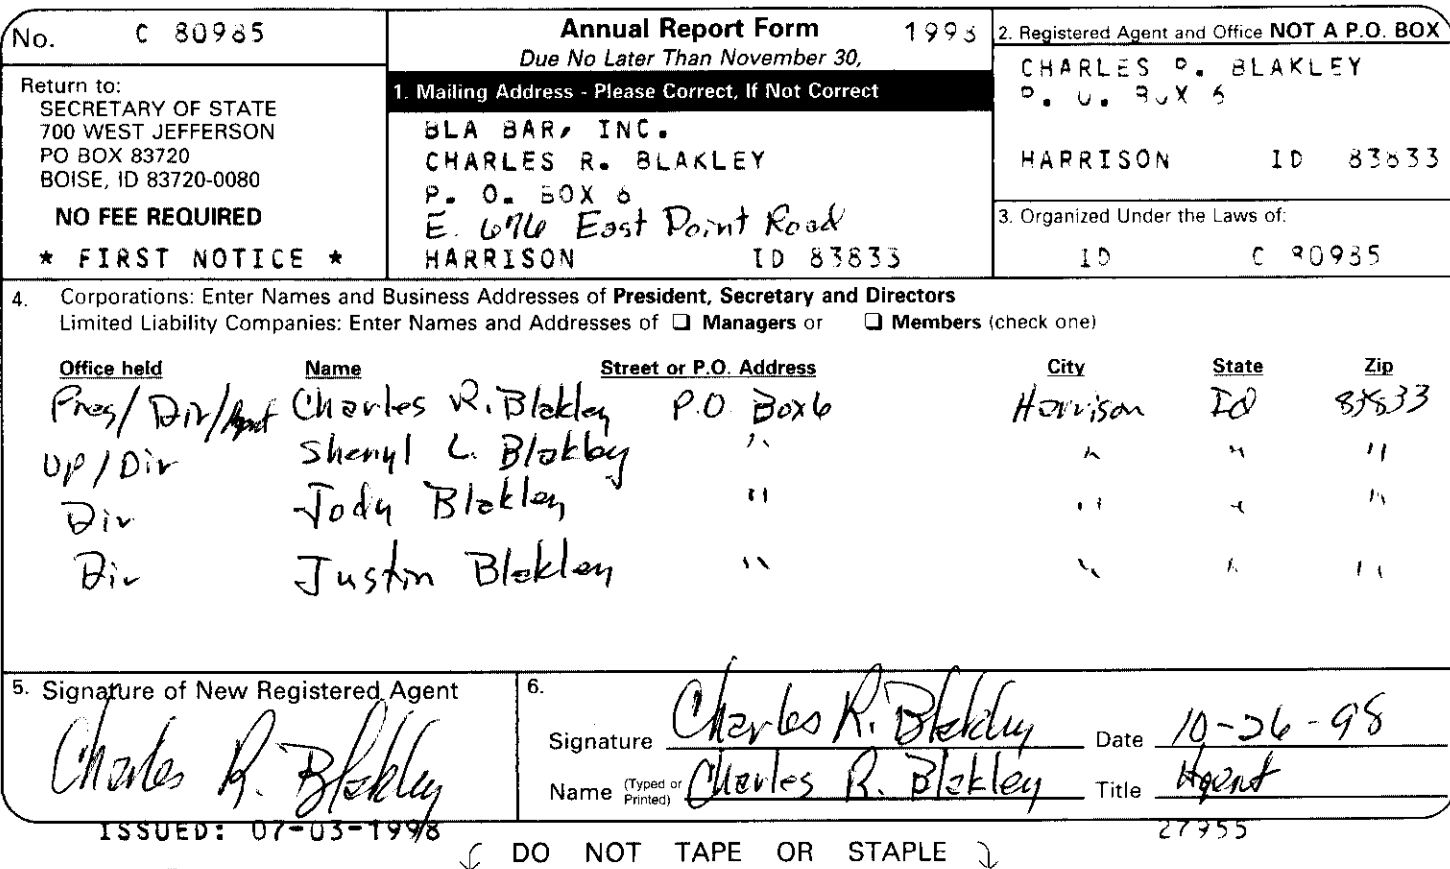 No. C 80985
Return to:
SECRETARY OF STATE
700 WEST JEFFERSON
PO BOX 83720
BOISE, ID 83720-0080
NO FEE REQUIRED
* FIRST NOTICE *
Annual Report Form 1998
Due No Later Than November 30,
1. Mailing Address - Please Correct, If Not Correct
BLA BAR, INC.
CHARLES R. BLAKLEY
P. O. BOX 6
E. 676 East Point Road
HARRISON ID 83833
2. Registered Agent and Office NOT A P.O. BOX
CHARLES R. BLAKLEY
P. O. BOX 6
HARRISON ID 83833
3. Organized Under the Laws of:
ID C 80985
4. Corporations: Enter Names and Business Addresses of President, Secretary and Directors
Limited Liability Companies: Enter Names and Addresses of ❑ Managers or ❑ Members (check one)
Office held Name Street or P.O. Address City State Zip
Pres/Dir/Agnt Charles R. Blakley P.O. Box 6 Harrison Id 83833
VP/Dir Sheryl L. Blakley " " " "
Div Jody Blakley " " " "
Div Justin Blakley " " " "
5. Signature of New Registered Agent
Charles R. Blakley
6.
Signature Charles R. Blakley Date 10-26-98
Name (Typed or Printed) Charles R. Blakley Title Agent
ISSUED: 07-03-1998 27955
DO NOT TAPE OR STAPLE